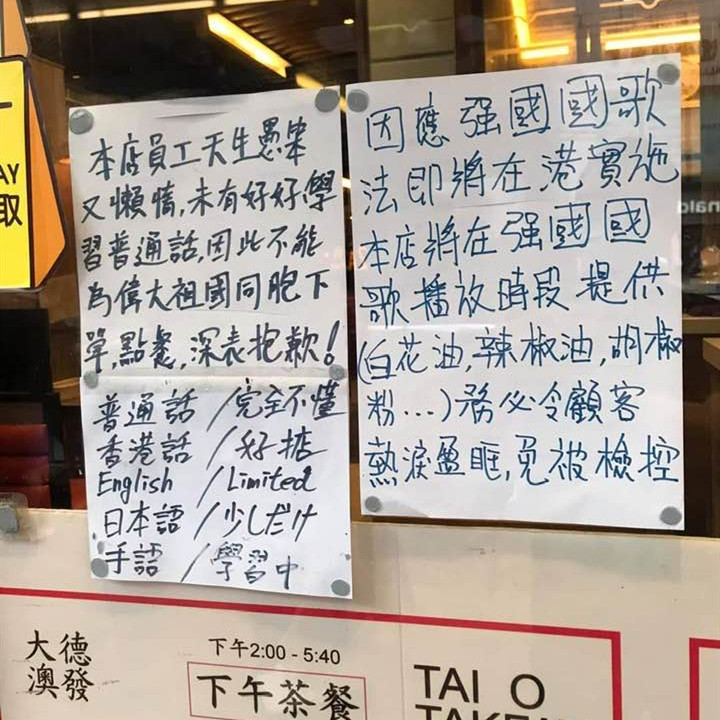 本店員工天生愚笨
又懶惰,未有好好學
習普通話,因此不能
為偉大祖國同胞下
單,點餐,深表抱歉!
普通話/完全不懂
香港話/好掂
English/Limited
日本語/少しだけ
手語/學習中
因應强國國歌
法即將在港實施
本店將在强國國
歌播放時段提供
(白花油,辣椒油,胡椒
粉...)務必令顧客
熱淚盈眶,免被檢控
AY
取
大德
澳發
下午2:00 - 5:40
下午茶餐
TAI O